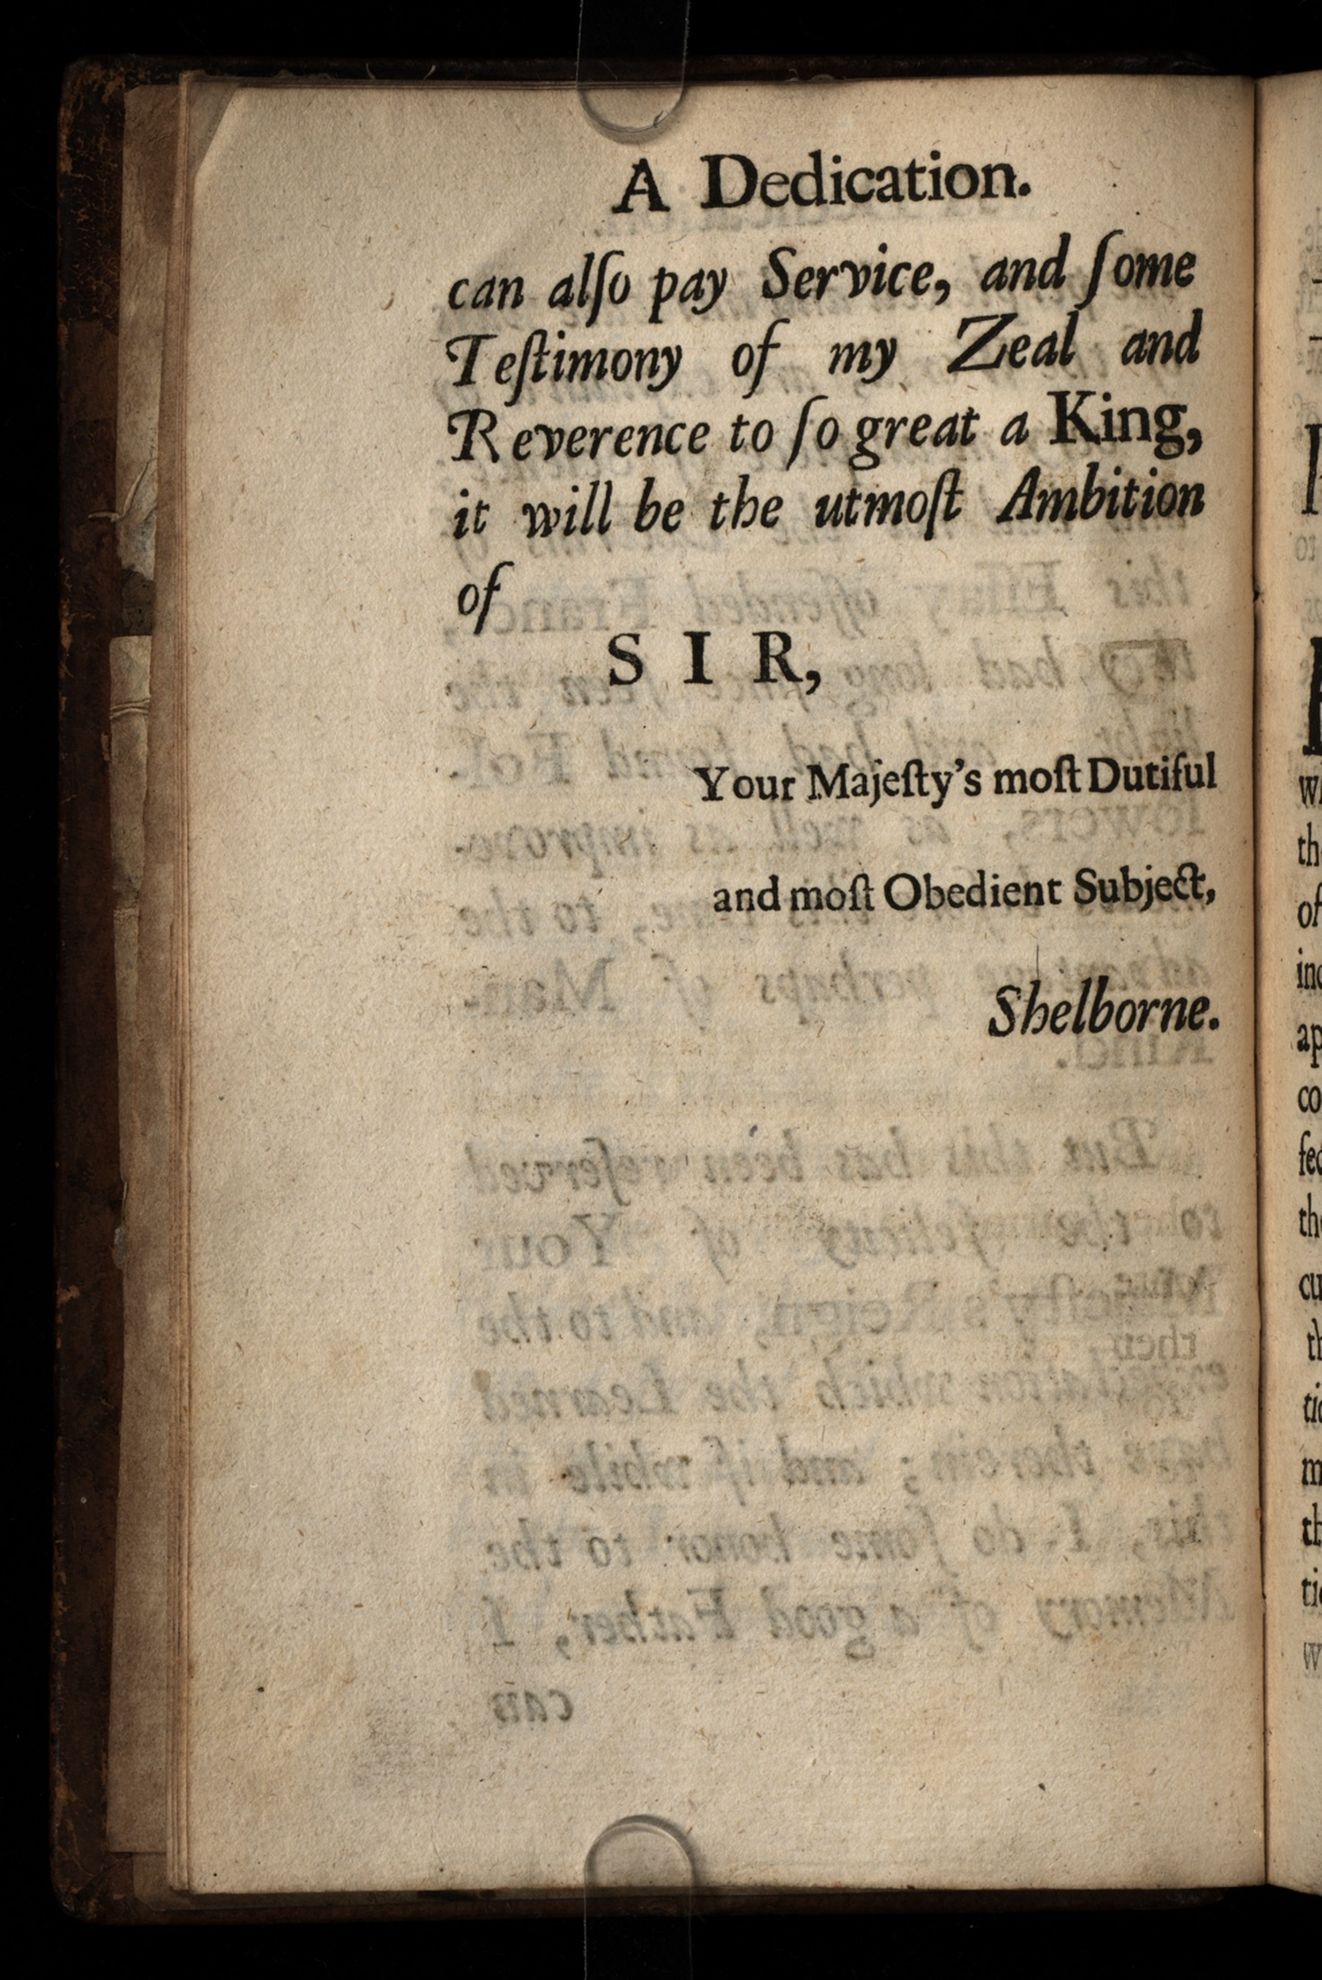 A Dedication.
can alſo pay Service, and ſome
Teſtimony of my Zeal and
Reverence to ſo great a King,
it will be the utmoſt Ambition
of
S I R,
Your Majeſty's moſt Dutiful
and moſt Obedient Subject,
Shelborne.